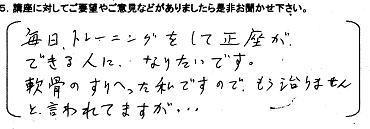 5. 講座に対してご要望やご意見などがありましたら是非お聞かせ下さい。
毎日、トレーニングをして正座が
できる人に、なりたいです。
軟骨のすりへった私ですので、もう治りません
と言われてますが・・・